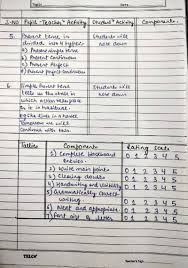 Topic
Date
S.NO Pupil-Teacher Activity Student Activity Components
5. Present tense is Students will
divided into 4 types note down
a) Present simple tense
b) Present Continuous
c) Present Perfect
d) Present perfect continuous
6. Simple Present tense Students will
tells us the state in note down
which action takes place
or it is habitual
Tomorrow we will
continue with this
topic.
Tallies Components Rating Scale
1) Complete blackboard 0 1 2 3 4 5
2) Write main points 0 1 2 3 4 5
3) Clearing doubts 0 1 2 3 4 5
4) Handwriting and Visibility 0 1 2 3 4 5
5) Grammatically correct 0 1 2 3 4 5
writing
6) Neat and appropriate 0 1 2 3 4 5
7) 0 1 2 3 4 5
Teacher's Sign